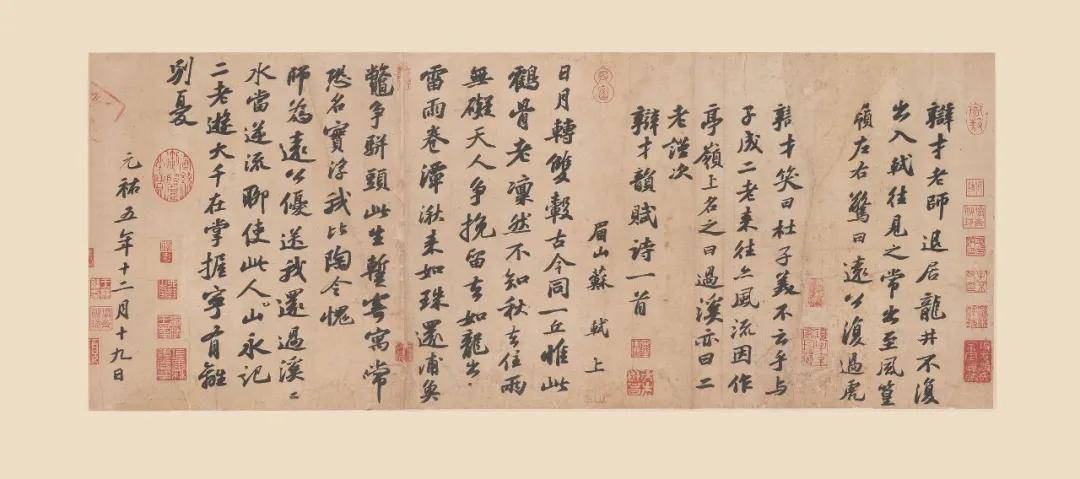 辯才老師退居龍井不復
出入軾往見之常出至風篁
嶺左右驚曰遠公復過虎
辯才笑曰杜子美不云乎與
子成二老来往亦風流因作
亭嶺上名之曰過溪亦曰二
老謹次
辯才韻賦詩一首
眉山蘇 軾 上
日月轉雙轂古今同一丘惟此
鶴骨老凜然不知秋去住兩
無礙天人争挽留去如龍出
雷雨卷潭湫来如珠還浦魚
鼈争駢頭此生蹔寄寓常
恐名實浮我比陶令愧
師為遠公優送我還過溪〻
水當逆流聊使此人山永記
二老遊大千在掌握寧有離
別憂
元祐五年十二月十九日